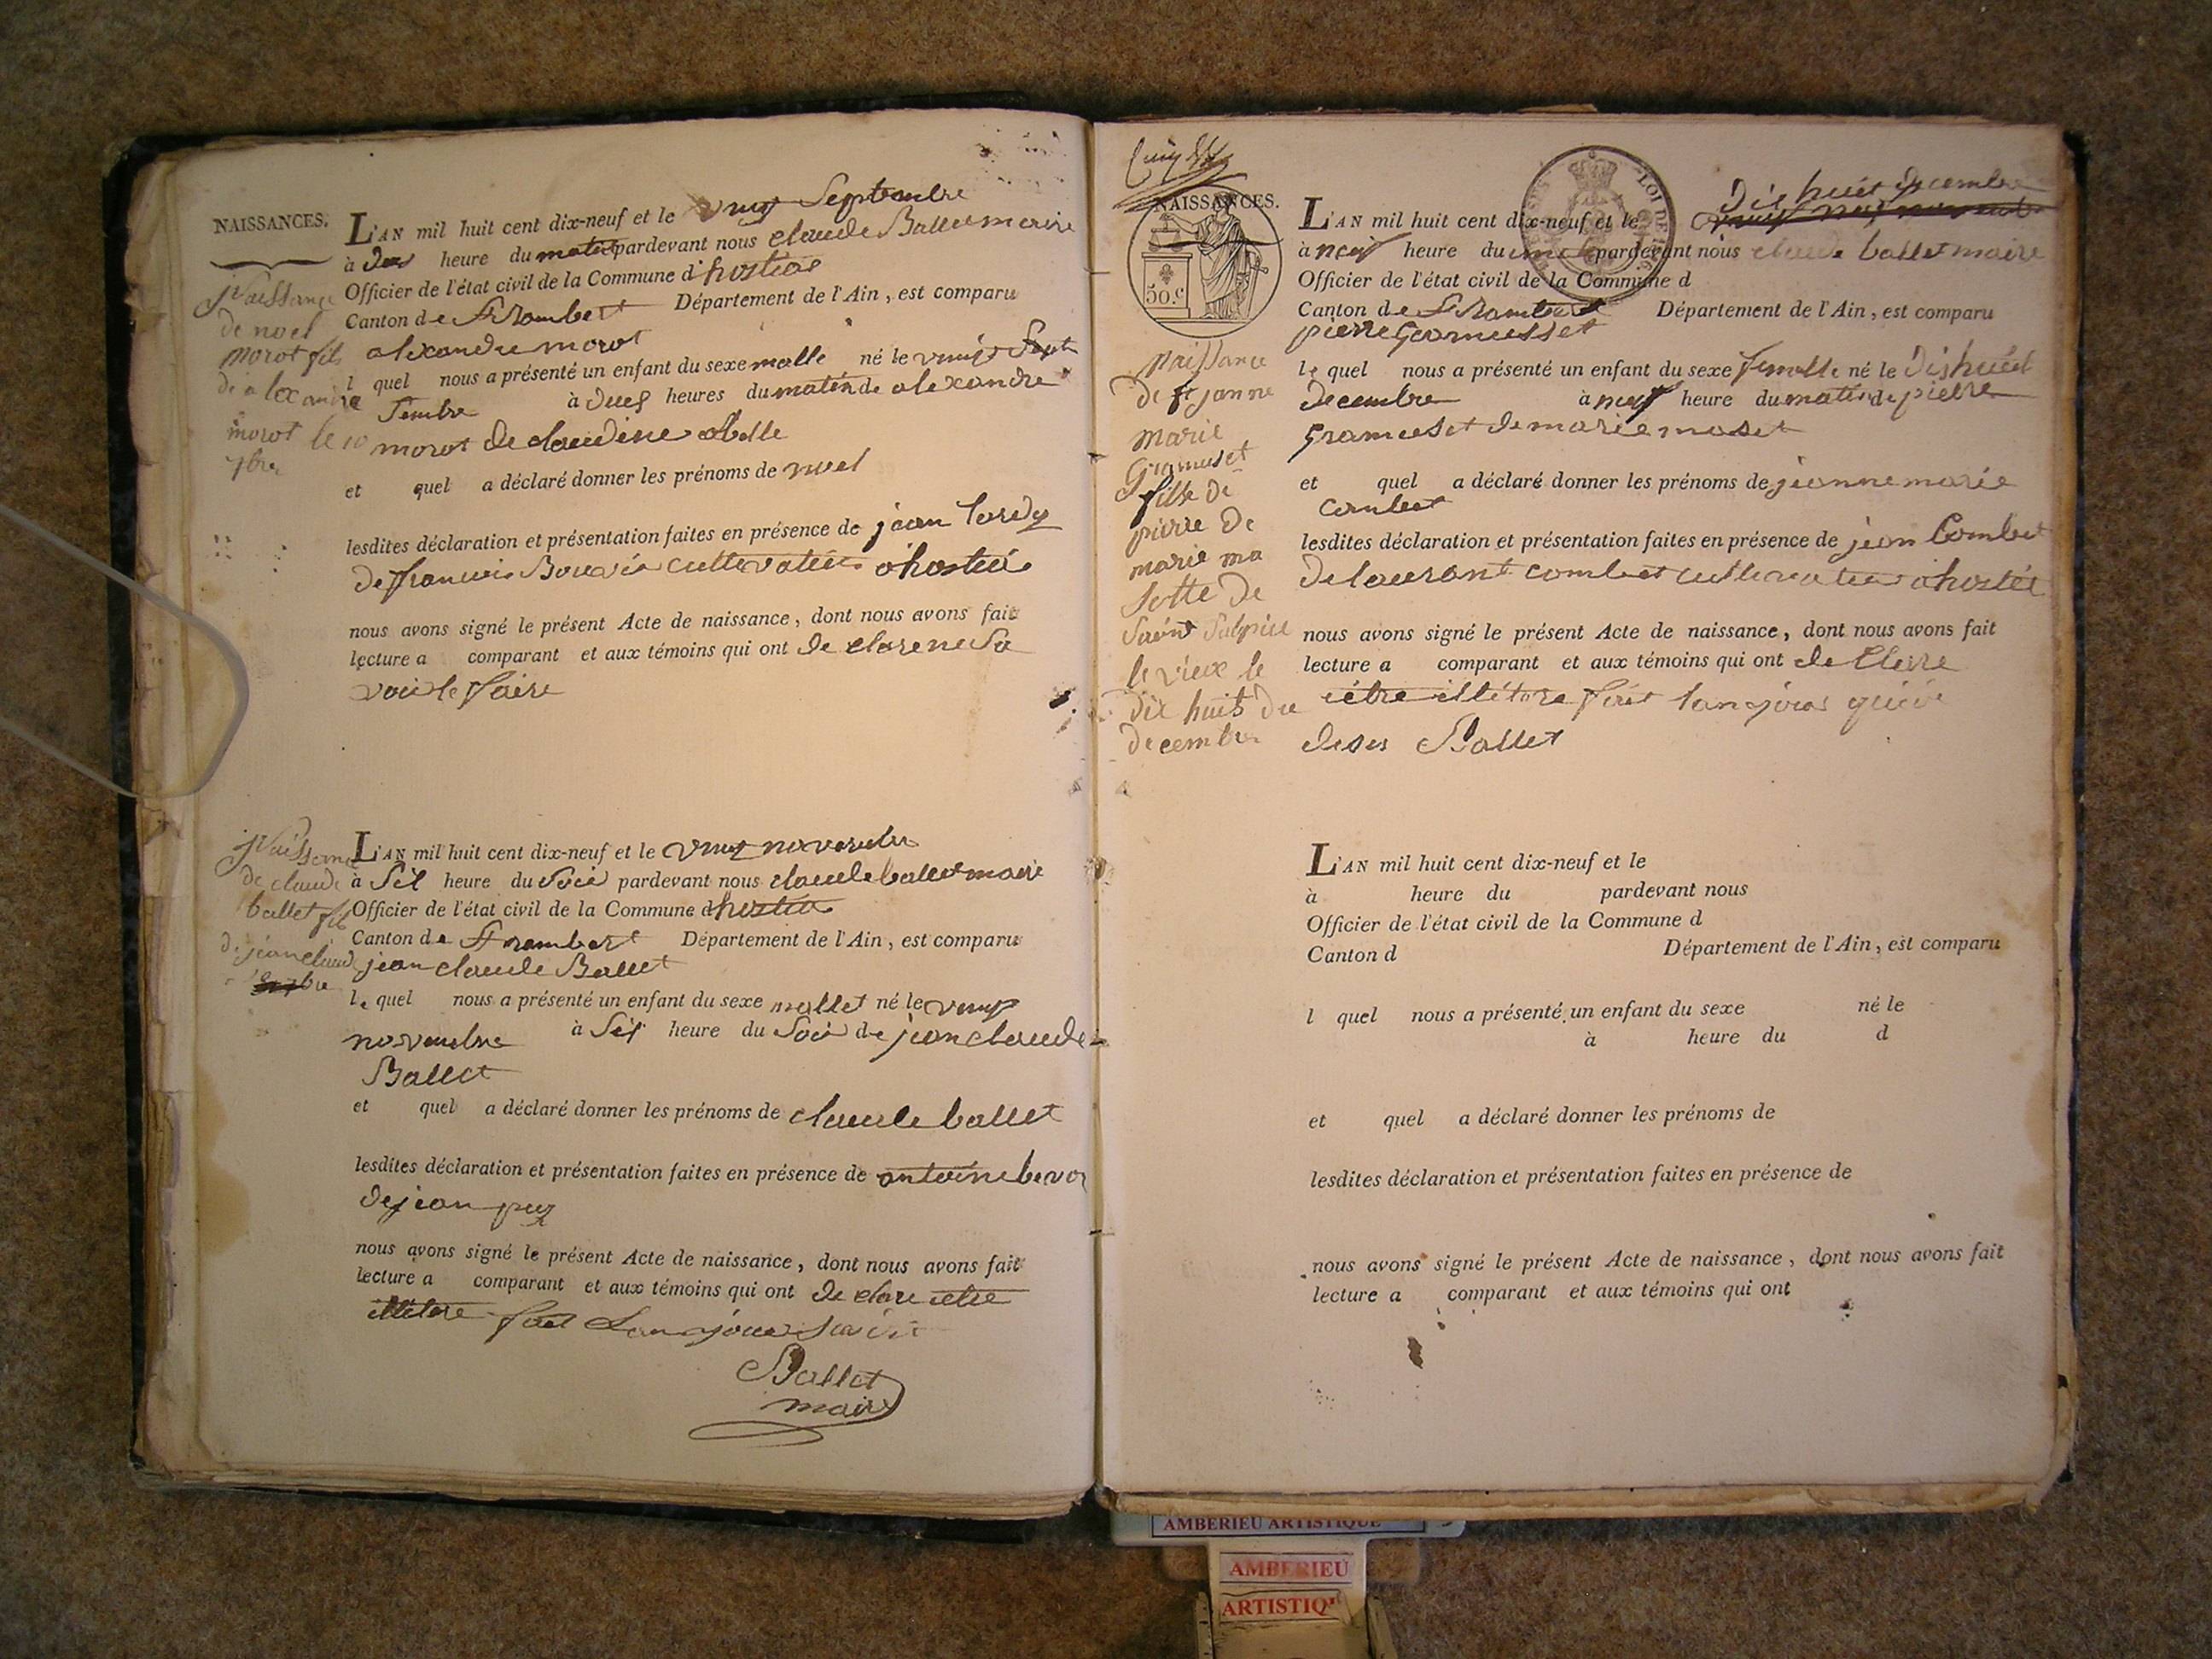 NAISSANCES.
L'AN mil huit cent dix-neuf et le vingt Septembre
à deux heure du matin pardevant nous claude Ballet maire
Officier de l'état civil de la Commune d'hostias
Canton de St Rambert Département de l'Ain, est comparu
alexandre morot
l quel nous a présenté un enfant du sexe malle né le vingt Sept
tembre à deux heures du matin de alexandre
morot de claudine
et quel a déclaré donner les prénoms de noel
lesdites déclaration et présentation faites en présence de jean
de francois cultivateur a hostia
nous avons signé le présent Acte de naissance, dont nous avons fait
lecture a comparant et aux témoins qui ont de clare ne Sa
voir le faire
Naissance
de noel
morot fils
de alexandre
morot le 10
7bre
L'AN mil huit cent dix-neuf et le vingt novembre
à Six heure du Soir pardevant nous claude ballet maire
Officier de l'état civil de la Commune d hostia
Canton de St rambert Département de l'Ain, est comparu
jean claude Ballet
le quel nous a présenté un enfant du sexe mallet né le vingt
novembre à Six heure du Soir de jean claude
Ballet
et quel a déclaré donner les prénoms de claude ballet
lesdites déclaration et présentation faites en présence de antoine
de jean
nous avons signé le présent Acte de naissance, dont nous avons fait
lecture a comparant et aux témoins qui ont de clare etre
illetere fait
Ballet
maire
Naissance
de claude
ballet fils
de jean claude
NAISSANCES.
50.c
L'AN mil huit cent dix-neuf et le Dix huit decembre
à neuf heure du pardevant nous claude ballet maire
Officier de l'état civil de la Commune d
Canton de St Rambert Département de l'Ain, est comparu
pierre Gramusset
le quel nous a présenté un enfant du sexe femelle né le Dix huit
decembre à neuf heure du matin de pierre
Gramuset de marie maset
et quel a déclaré donner les prénoms de jeanne marie
combet
lesdites déclaration et présentation faites en présence de jean Combet
de laurant combet cultivateur a hostie
nous avons signé le présent Acte de naissance, dont nous avons fait
lecture a comparant et aux témoins qui ont de Clere
etre illétere fait lan jour
deses Ballet
Naissance
de janne
marie
Gramuset
fille de
pierre de
marie ma
sotte de
Saint Sulpice
le vieux le
dix huit du
decembre
L'AN mil huit cent dix-neuf et le
à heure du pardevant nous
Officier de l'état civil de la Commune d
Canton d Département de l'Ain, est comparu
l quel nous a présenté un enfant du sexe né le
à heure du d
et quel a déclaré donner les prénoms de
lesdites déclaration et présentation faites en présence de
nous avons signé le présent Acte de naissance, dont nous avons fait
lecture a comparant et aux témoins qui ont
AMBERIEU ARTISTIQUE
AMBERIEU
ARTISTIQ'